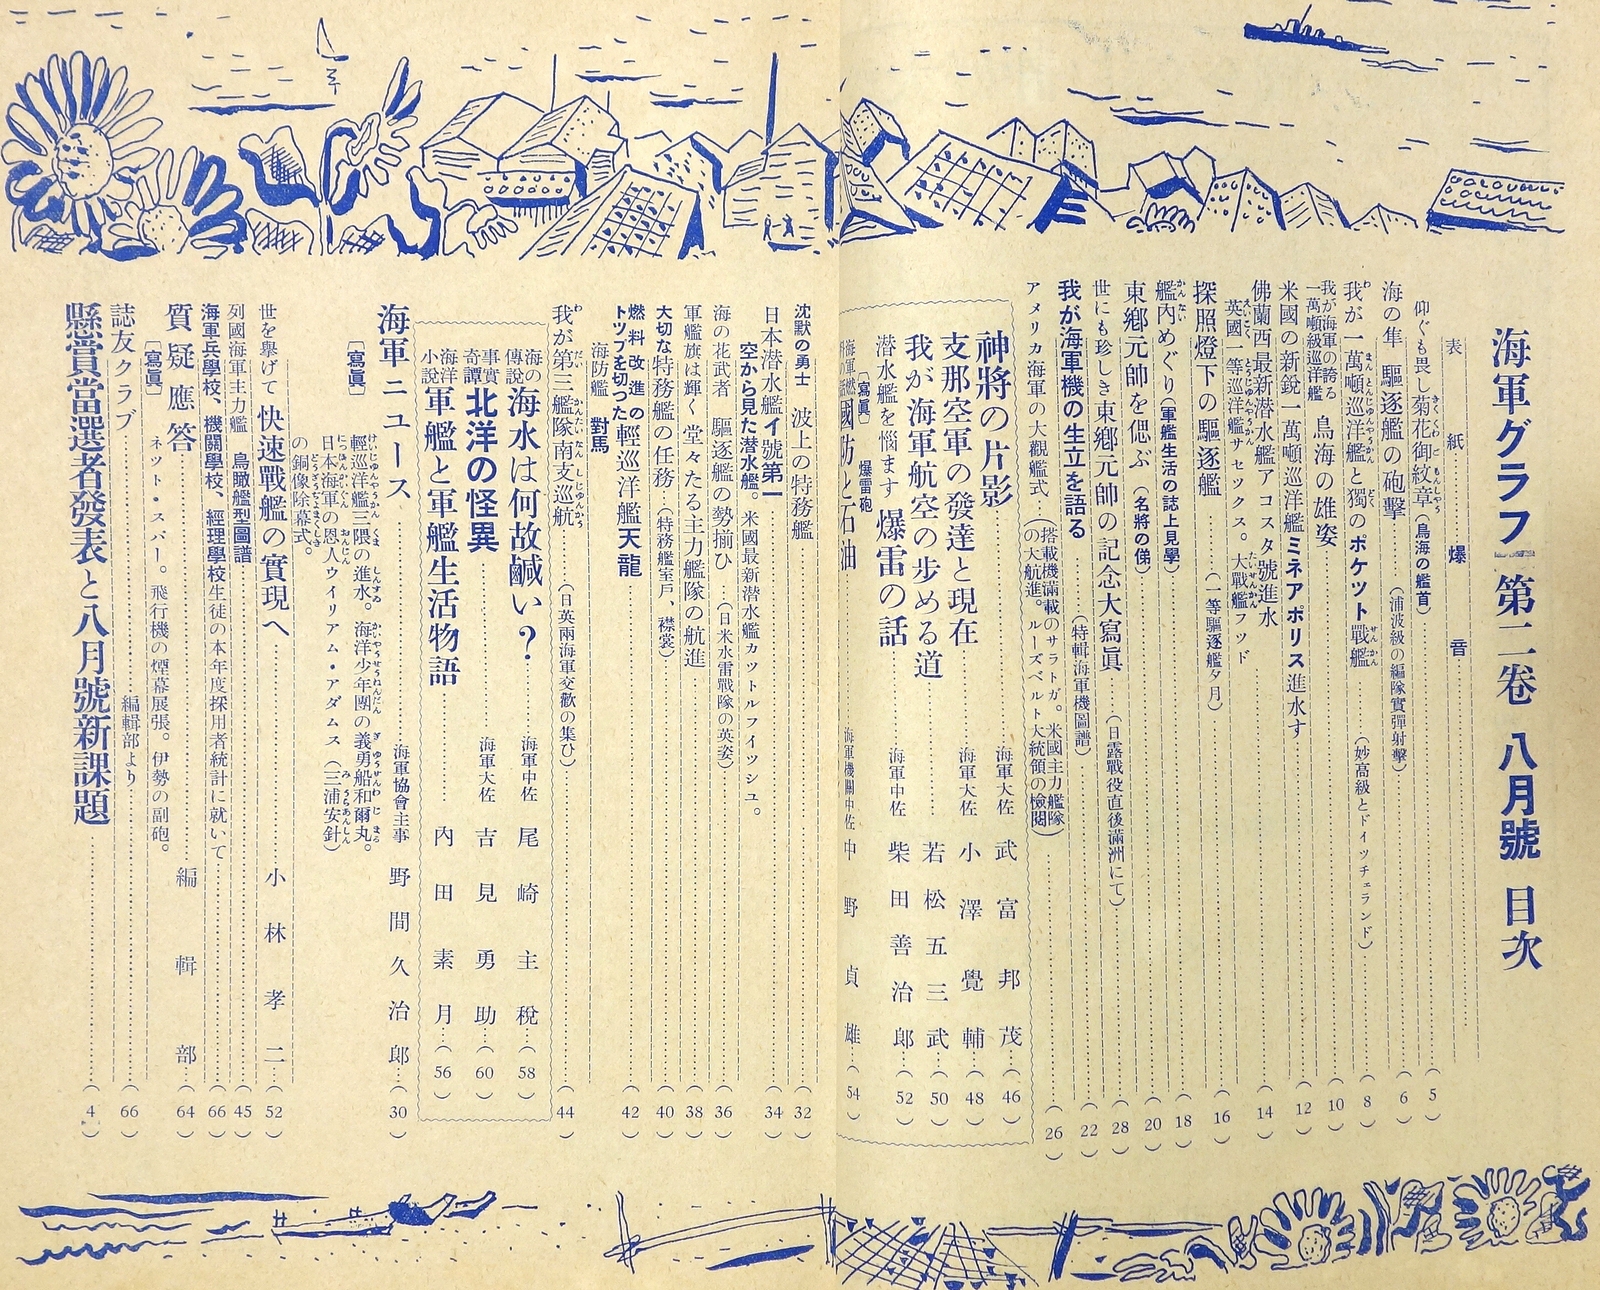 海軍グラフ 第二巻 八月號 目次
表紙 爆音
仰ぐも畏し菊花御紋章(鳥海の艦首)(5)
海の隼 驅逐艦の砲擊(浦波級の編隊實彈射擊)(6)
我が一萬噸巡洋艦と獨のポケツト戰艦(妙高級とドイツチェランド)(8)
我が海軍の誇る一萬噸級巡洋艦 鳥海の雄姿(10)
米國の新銳一萬噸巡洋艦ミネアポリス進水す(12)
佛蘭西最新潜水艦アコスタ號進水(14)
英國一等巡洋艦サセックス。大戰艦フッド
探照燈下の驅逐艦(一等驅逐艦夕月)(16)
艦內めぐり(軍艦生活の誌上見學)(18)
東鄕元帥を偲ぶ(名將の俤)(20)
世にも珍しき東鄕元帥の記念大寫眞(日露戰役直後滿洲にて)(28)
我が海軍機の生立を語る(特輯海軍機圖譜)(22)
アメリカ海軍の大觀艦式(搭載機滿載のサラトガ。米國主力艦隊の大航進。ルーズベルト大統領の檢閱)(26)
神將の片影 海軍大佐 武富邦茂(46)
支那空軍の發達と現在 海軍大佐 小澤覺輔(48)
我が海軍航空の步める道 若松五三武(50)
潜水艦を惱ます 爆雷の話 海軍中佐 柴田善治郎(52)
〔寫眞〕 爆雷砲
國防と石油 海軍機關中佐 中野貞雄(54)
沈默の勇士 波上の特務艦(32)
日本潜水艦イ號第一(34)
空から見た潜水艦。米國最新潜水艦カツトルフイツシユ。
海の花武者 驅逐艦の勢揃ひ(日米水雷戰隊の英姿)(36)
軍艦旗は輝く 堂々たる主力艦隊の航進(38)
大切な特務艦の任務(特務艦室戶、襟裳)(40)
燃料改進のトツプを切つた輕巡洋艦天龍(42)
海防艦 對馬
我が第三艦隊南支巡航(日英兩海軍交歡の集ひ)(44)
海の傳說 海水は何故鹹い? 海軍中佐 尾崎主稅(58)
事實奇譚 北洋の怪異 海軍大佐 吉見勇助(60)
海洋小說 軍艦と軍艦生活物語 內田素月(56)
海軍ニュース 海軍協會主事 野間久治郎(30)
〔寫眞〕 輕巡洋艦三隈の進水。海洋少年團の義勇船和爾丸。
日本海軍の恩人ウイリアム・アダムス(三浦安針)
の銅像除幕式。
世を擧げて 快速戰艦の實現へ 小林孝二(52)
列國海軍主力艦 鳥瞰艦型圖譜(45)
海軍兵學校、機關學校、經理學校生徒の本年度採用者統計に就いて(66)
質疑應答 編輯部(64)
〔寫眞〕 ネツト・スパー。飛行機の煙幕展張。伊勢の副砲。
誌友クラブ 編輯部より(66)
懸賞當選者發表と八月號新課題(4)